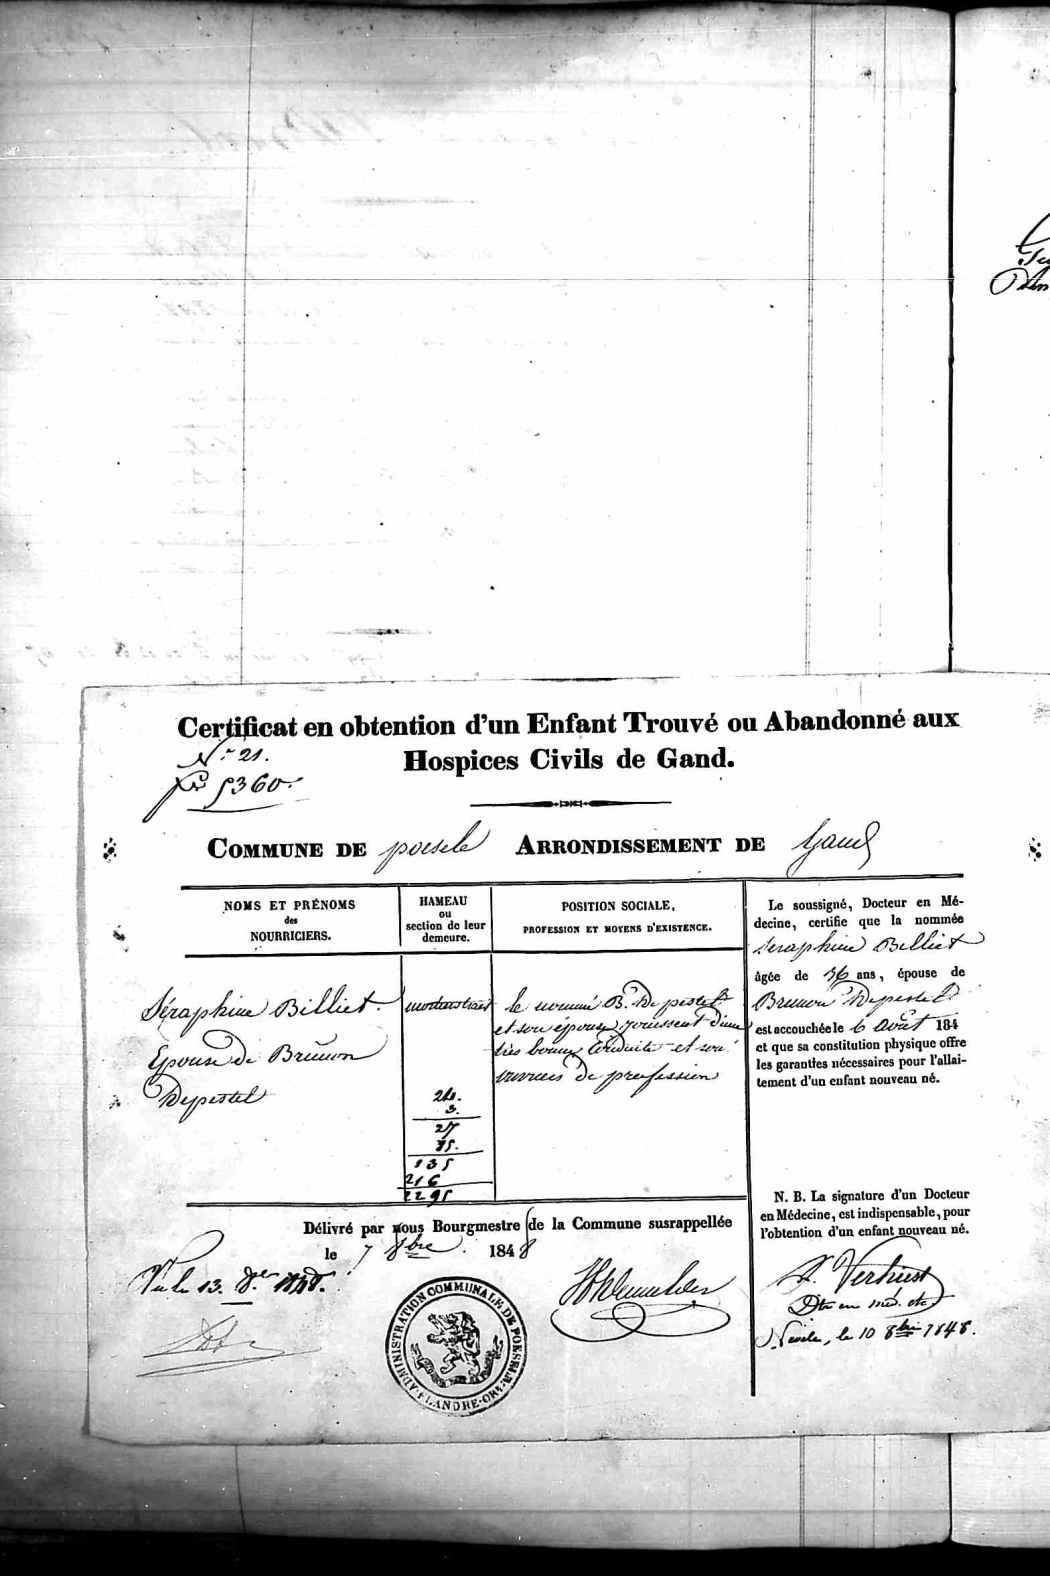 Certificat en obtention d'un Enfant Trouvé ou Abandonné aux
Hospices Civils de Gand.
N.º 21.
5360.
COMMUNE DE poesele ARRONDISSEMENT DE Gand
NOMS ET PRÉNOMS
des
NOURRICIERS.
HAMEAU
ou
section de leur
demeure.
POSITION SOCIALE,
PROFESSION ET MOYENS D'EXISTENCE.
Séraphine Billiet.
Epouse de Brunon
Depestel
le nommé B. Depestel
et son épouse jouissent d'une
très bonne conduite et son
de profession
24.
3.
27
85.
135
216
2295
Le soussigné, Docteur en Mé-
decine, certifie que la nommée
Seraphine Billiet
âgée de 36 ans, épouse de
Brunon Depestel
est accouchée le 6 Août 184
et que sa constitution physique offre
les garanties nécessaires pour l'allai-
tement d'un enfant nouveau né.
N. B. La signature d'un Docteur
en Médecine, est indispensable, pour
l'obtention d'un enfant nouveau né.
Délivré par nous Bourgmestre de la Commune susrappellée
le 7 8bre 1848
Vu le 13.
A. Verhiest
Dr en méd. etc
Nevele, le 10 8bre 1848.
ADMINISTRATION COMMUNALE DE POESELE
FLANDRE-ORIE